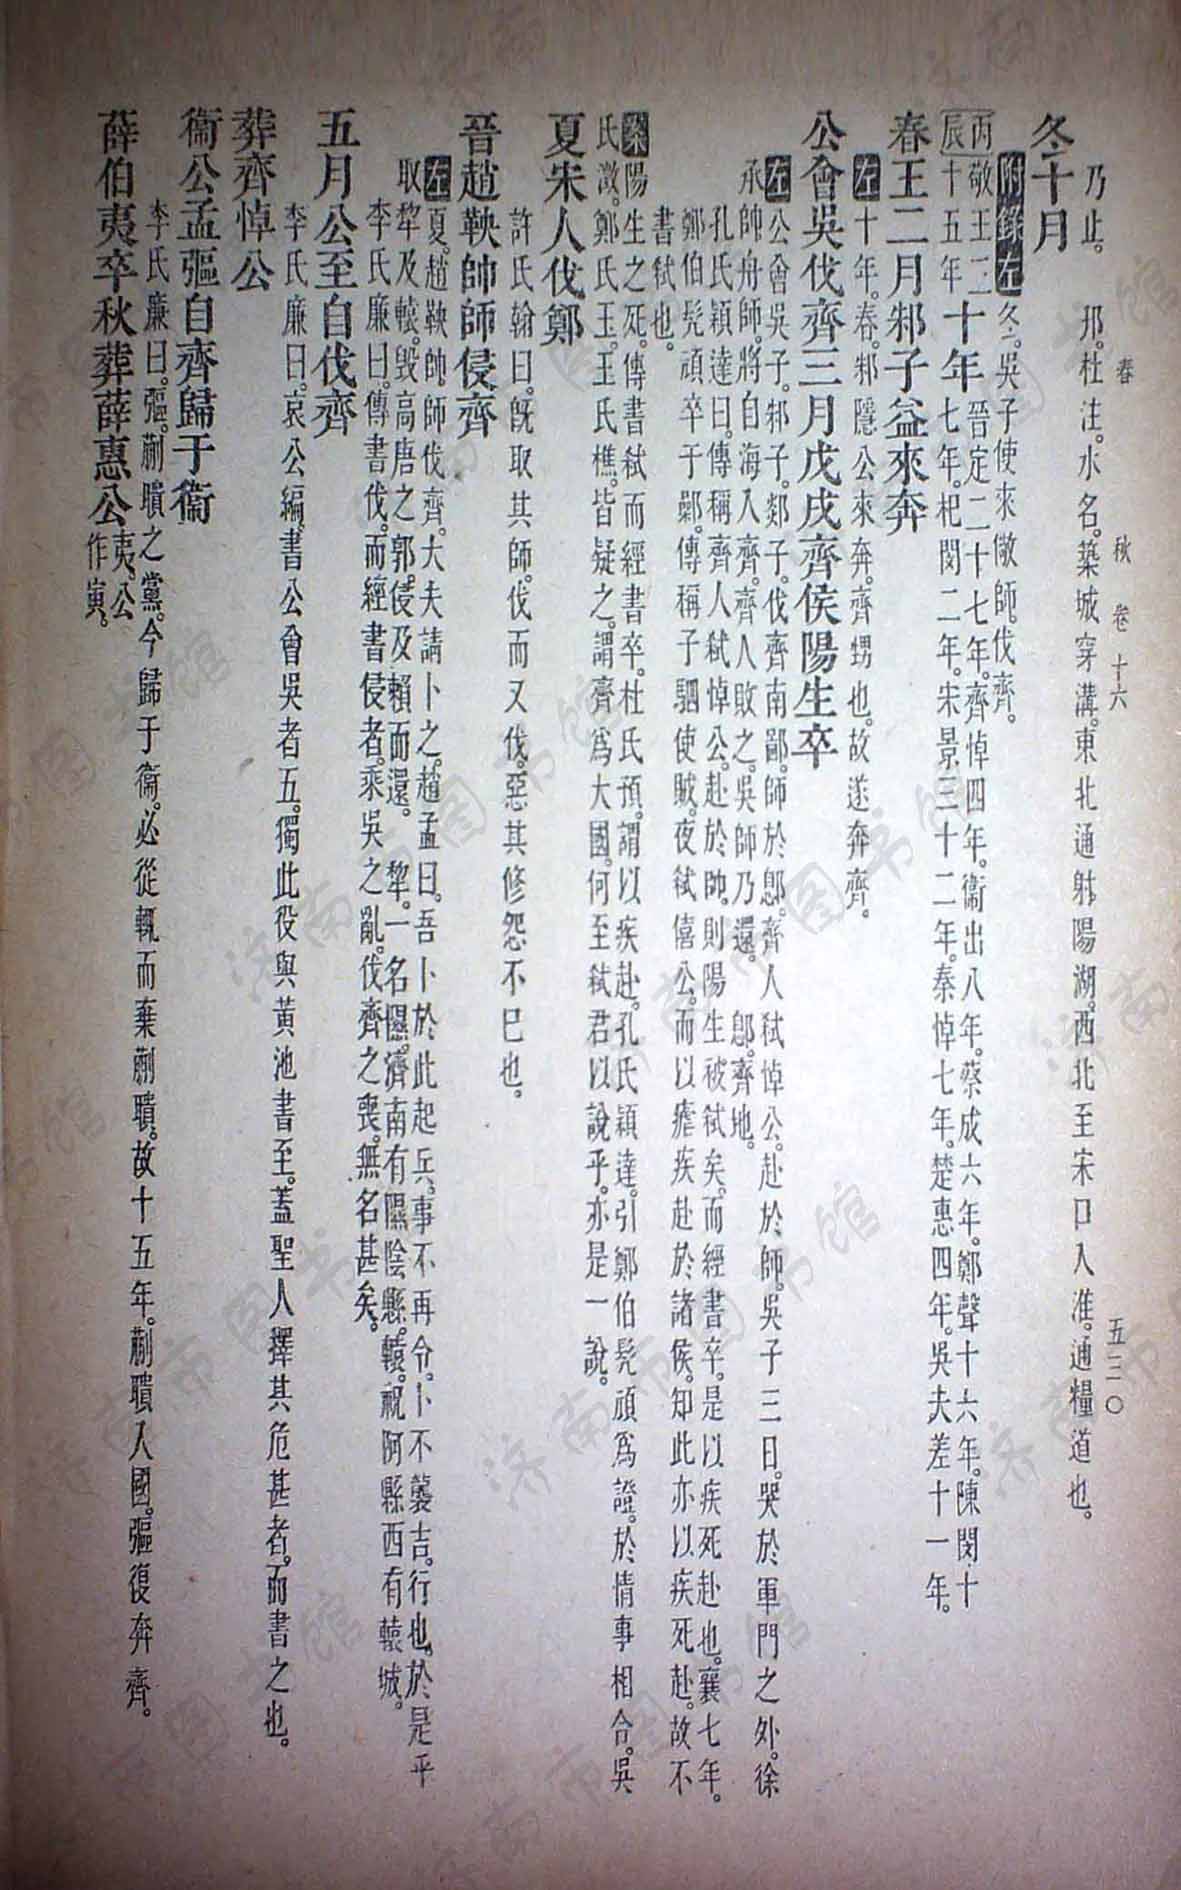 春秋 卷十六 五三〇
乃止。 邗。杜注。水名。築城穿溝。東北通射陽湖。西北至宋口入淮。通糧道也。
冬十月
附錄左 冬。吳子使來儆師。伐齊。
丙辰 敬王三十五年 十年 晉定二十七年。齊悼四年。衞出八年。蔡成六年。鄭聲十六年。陳閔十
七年。杞閔二年。宋景三十二年。秦悼七年。楚惠四年。吳夫差十一年。
春王二月邾子益來奔
左 十年。春。邾隱公來奔。齊甥也。故遂奔齊。
公會吳伐齊三月戊戌齊侯陽生卒
左 公會吳子。邾子。郯子。伐齊南鄙。師於鄎。齊人弒悼公。赴於師。吳子三日。哭於軍門之外。徐
承帥舟師。將自海入齊。齊人敗之。吳師乃還。 鄎。齊地。
孔氏穎達曰。傳稱齊人弒悼公。赴於師。則陽生被弒矣。而經書卒。是以疾死赴也。襄七年。
鄭伯髠頑卒于鄵。傳稱子駟使賊。夜弒僖公。而以瘧疾赴於諸侯。知此亦以疾死赴。故不
書弒也。
案 陽生之死。傳書弒而經書卒。杜氏預。謂以疾赴。孔氏穎達。引鄭伯髠頑爲證。於情事相合。吳
氏澂。鄭氏玉。王氏樵。皆疑之。謂齊爲大國。何至弒君以說乎。亦是一說。
夏宋人伐鄭
許氏翰曰。旣取其師。伐而又伐。惡其修怨不已也。
晉趙鞅帥師侵齊
左 夏。趙鞅帥師伐齊。大夫請卜之。趙孟曰。吾卜於此起兵。事不再令。卜不襲吉。行也。於是乎
取犂及轅。毀高唐之郭。侵及賴而還。 犂。一名隰。濟南有隰陰縣。轅。祝阿縣西有轅城。
李氏廉曰。傳書伐。而經書侵者。乘吳之亂。伐齊之喪。無名甚矣。
五月公至自伐齊
李氏廉曰。哀公編。書公會吳者五。獨此役與黃池書至。蓋聖人擇其危甚者。而書之也。
葬齊悼公
衞公孟彄自齊歸于衞
李氏廉曰。彄。蒯聵之黨。今歸于衞。必從輒而棄蒯聵。故十五年。蒯聵入國。彄復奔齊。
薛伯夷卒秋葬薛惠公 夷。公作寅。